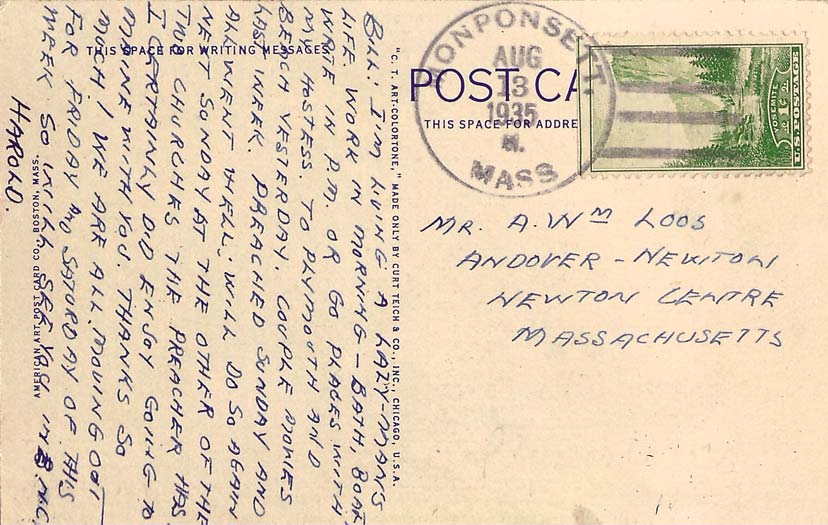 THIS SPACE FOR WRITING MESSAGES
POST CA
THIS SPACE FOR ADDRE
"C. T. ART-COLORTONE," MADE ONLY BY CURT TEICH & CO., INC., CHICAGO, U.S.A.
AMERICAN ART POST CARD CO., BOSTON, MASS.
MONPONSETT.
AUG
13
1935
M.
MASS
YOSEMITE
1c
U.S. POSTAGE
BILL: I'M LIVING A LAZY-MAN'S
LIFE. WORK IN MORNING - BATH, BOAT,
WRITE IN P.M. OR GO PLACES WITH
MY HOSTESS. TO PLYMOUTH AND
BEACH YESTERDAY. COUPLE MOVIES
LAST WEEK. PREACHED SUNDAY AND
ALL WENT WELL: WILL DO SO AGAIN
NEXT SUNDAY AT THE OTHER OF THE
TWO CHURCHES THE PREACHER HAS.
I CERTAINLY DID ENJOY GOING TO
MAINE WITH YOU. THANKS SO
MUCH! WE ARE ALL MOVING OUT
FOR FRIDAY AND SATURDAY OF THIS
WEEK SO WILL SEE YOU IN
HAROLD.
MR. A. WM LOOS
ANDOVER - NEWTON
NEWTON CENTRE
MASSACHUSETTS